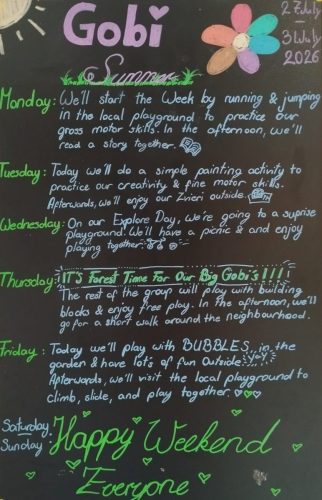 Gobi
27 July
—
31 July
2026
Summer
Monday: We'll start the Week by running & jumping
in the local playground to practice our
gross motor skills. In the afternoon, we'll
read a story together.
Tuesday: Today we'll do a simple painting activity to
practice our creativity & fine motor skills.
Afterwards, we'll enjoy our Zvieri outside.
Wednesday: On our Explore Day, we're going to a suprise
playground. We'll have a picnic & and enjoy
playing together.
Thursday: IT's Forest Time For Our Big Gobi's !!!!
The rest of the group will play with building
blocks & enjoy free play. In the afternoon, we'll
go for a short walk around the neighbourhood.
Friday: Today we'll play with BUBBLES in the
garden & have lot's of fun outside. yay
Afterwards, we'll visit the local playground to
climb, slide, and play together.
Saturday
Sunday
Happy Weekend
Everyone